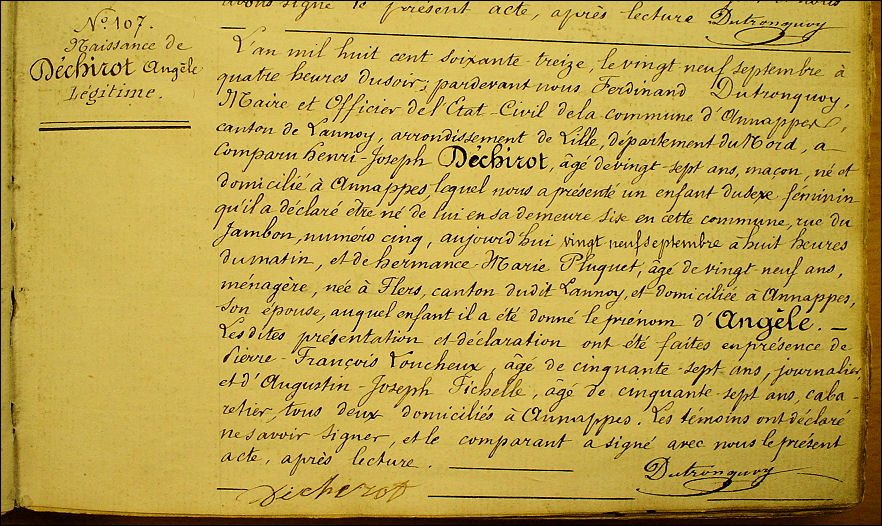 avons signé le présent acte, après lecture Dutronquoy
N.º 107.
Naissance de
Déchirot Angèle
Légitime.
L'an mil huit cent soixante-treize, le vingt neuf septembre à
quatre heures du soir; pardevant nous Ferdinand Dutronquoy,
Maire et Officier de l'Etat-Civil de la commune d'Annappes,
canton de Lannoy, arrondissement de Lille, département du Nord, a
comparu henri-Joseph Déchirot, âgé de vingt-sept ans, maçon, né et
domicilié à Annappes, lequel nous a présenté un enfant du sexe féminin
qu'il a déclaré être né de lui en sa demeure sise en cette commune, rue du
Jambon, numéro cinq, aujourd'hui vingt neuf septembre à huit heures
du matin, et de hermance-Marie Pluquet, âgé de vingt neuf ans,
ménagère, née à Flers, canton dudit Lannoy, et domiciliée à Annappes,
son épouse, auquel enfant il a été donné le prénom d'Angèle. —
Les dites présentation et déclaration ont été faites en présence de
Pierre-François Loucheux, âgé de cinquante-sept ans, journalier,
et d'Augustin-Joseph Fichelle, âgé de cinquante-sept ans, caba-
retier, tous deux domiciliés à Annappes. Les témoins ont déclaré
ne savoir signer, et le comparant a signé avec nous le présent
acte, après lecture.
Dutronquoy
Dechirot